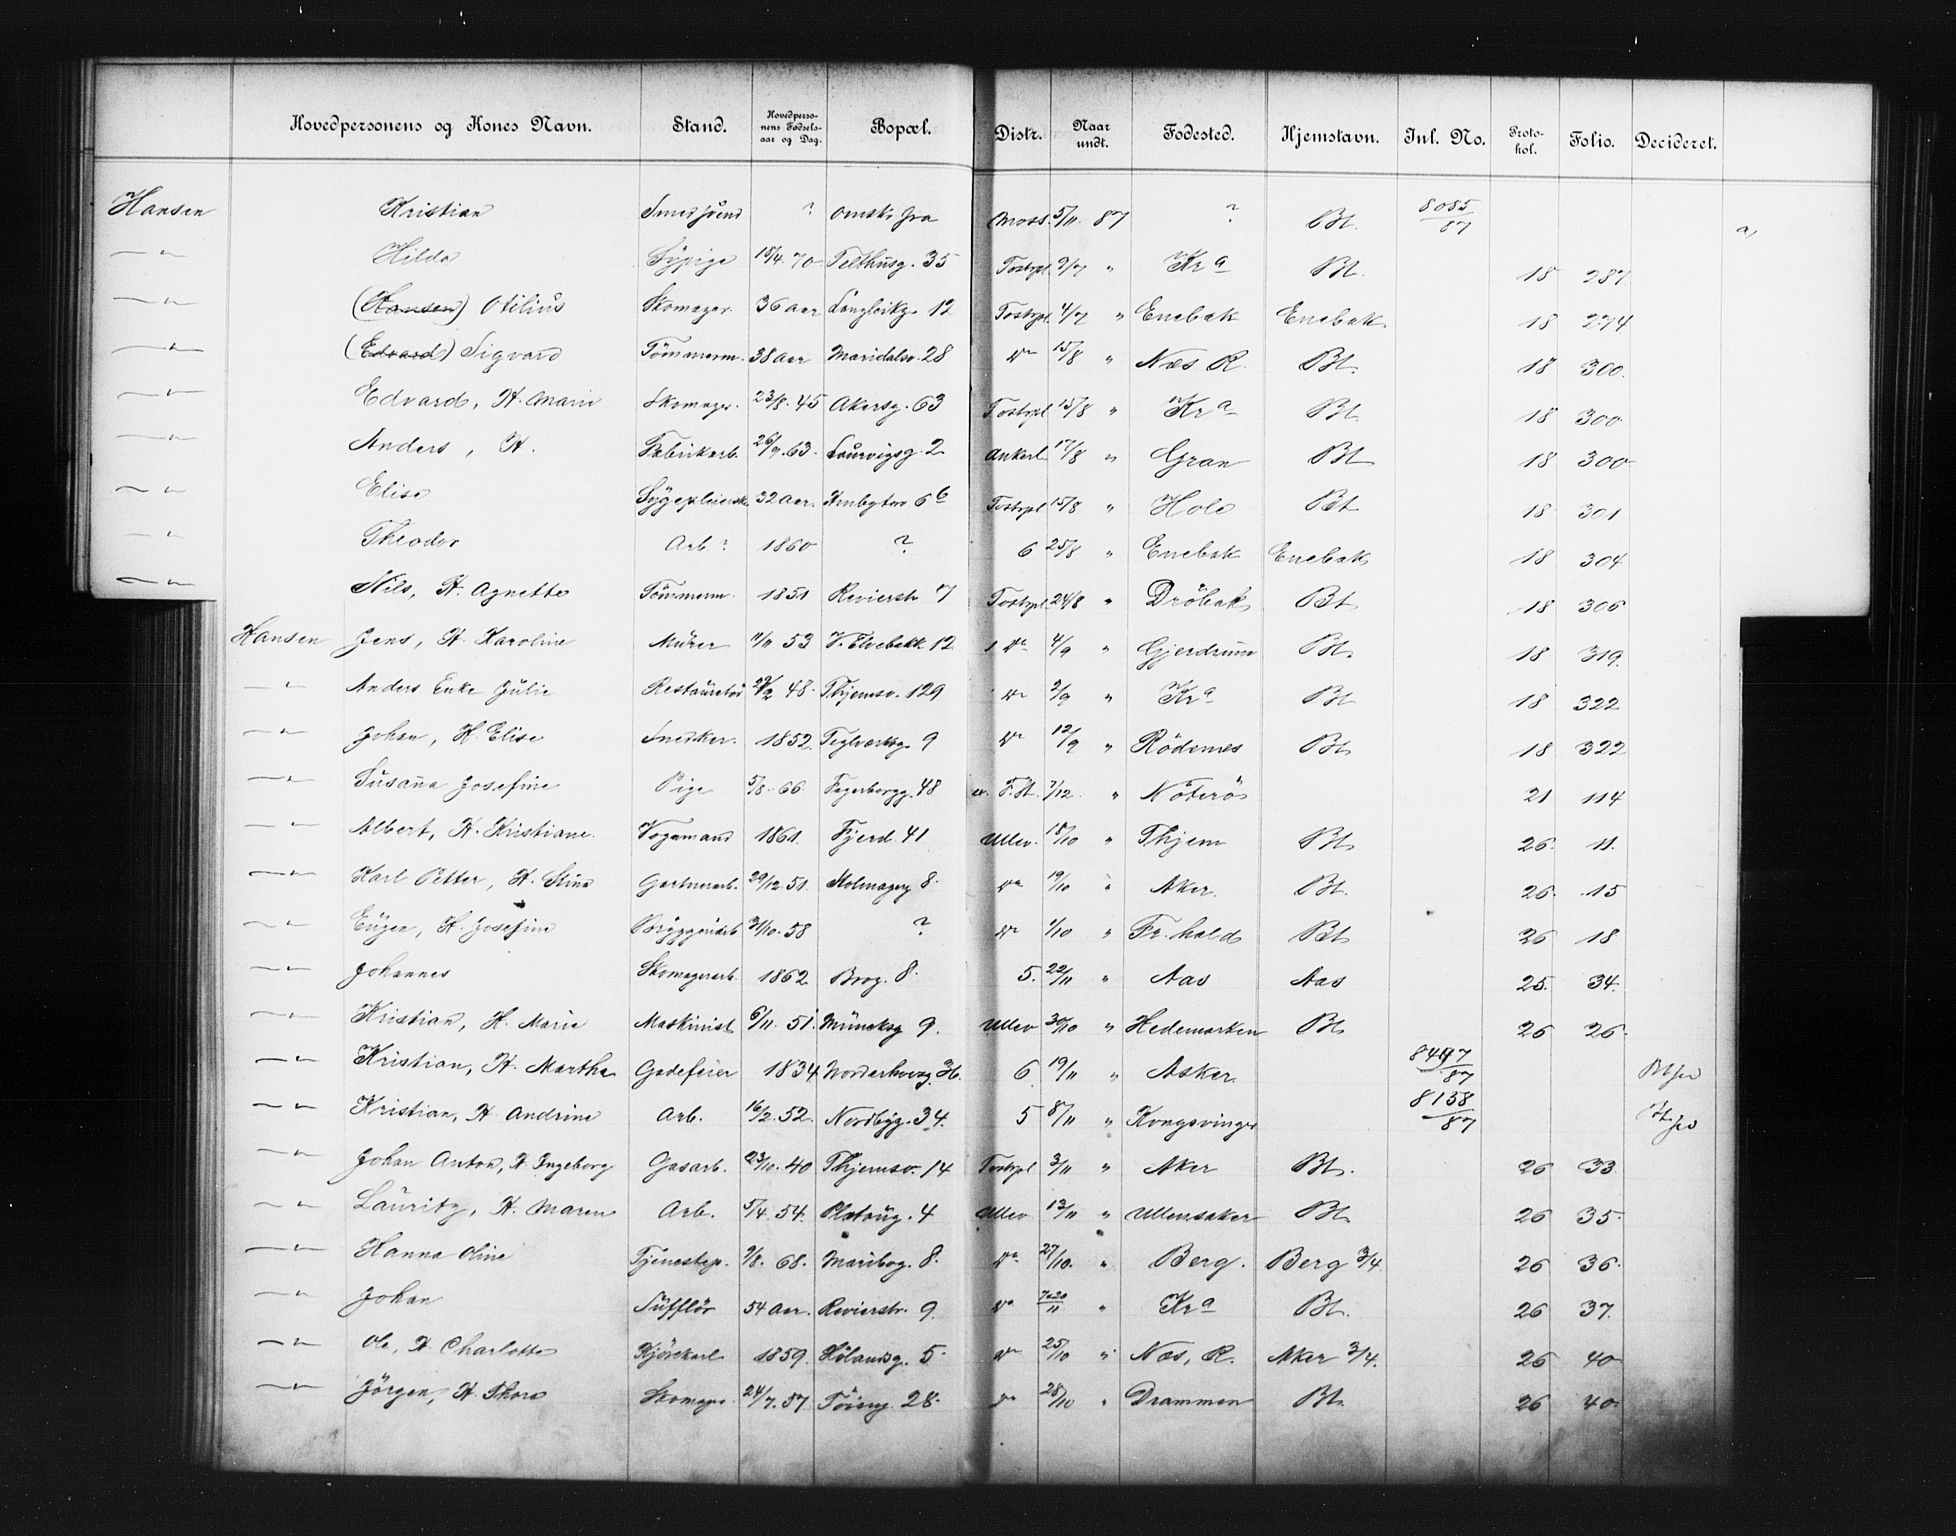 Hovedpersonens og Kones Navn. Stand. Hovedpersonens Fødselsaar og Dag. Bopæl. Distr. Naar undt. Fødested. Hjemstavn. Inl. No. Protokol. Folio. Decideret.
Hansen Kristian Smedsvend ? omst. fra Moss. 5/11 87 ? Bt. 8085/87 a,
—〃— Hilda Sypige 15/4 70 Telthusg. 35 Tostrpl. 9/7 〃 Kra Bt. 18 287.
—〃— (Hansen) Otilius Skomager. 36 Aar Langleikg. 12 Tostrpl. 4/7 〃 Enebak Enebak. 18 274
—〃— (Edvard) Sigvard Tömmerm. 38 Aar Maridalsv. 28 Do 15/8 〃 Næs R. Bt. 18 300.
—〃— Edvard, H. Marie Skomager. 23/8. 45 Akersg. 63 Tostrpl 15/8 〃 Kra Bt. 18 300.
—〃— Anders, H. Fabrikarb. 26/9. 63. Laurvigsg. 2 Ankerl. 17/8 〃 Gran Bt 18 300
—〃— Elise Sygepleierske 32 Aar. 6b Tostrpl 15/8 〃 Hole Bt 18 301
—〃— Theodor Arb ? 1860 ? 6 25/8 〃 Enebak Enebak 18 304
—〃— Nils, H. Agnette Tömmerm. 1851 Revierstr 7 Tostrpl 24/8 〃 Dröbak Bt 18 306
Hansen Jens, H. Karoline Murer 11/11 53 V. Elvebakk 12 1 Do 4/9 〃 Gjerdrum Bt. 18 319.
—〃— Anders Enke Julie Restauratör 48 Thjemsv. 129 Do 2/9 〃 Kra Bt 18 322
—〃— Johan, H. Elise Snedker. 1852. Teglverksg. 9 Do 12/9 〃 Rödenes Bt 18 322
—〃— Susana Josefine Pige 5/8. 66. Fagerborgg. 48 F.H. 7/12 〃 Nöterö 21 114
—〃— Albert, H. Kristiane. Vognmand 1861. Fjerd. 41 Ullev. 18/10 〃 Thjem Bt 26. 11.
—〃— Karl Petter, H. Stina Gartnerarb. 29/12. 51. Holmageg 8. Do 19/10 〃 Aker. Bt. 26. 15
—〃— Eugen, H. Josefine Bryggeriarb 31/10. 58 ? Do 1/10 〃 Fr.hald Bt 26 18
—〃— Johannes Skomagerarb. 1862. Brog. 8. 5. 22/11 〃 Aas Aas 25. 34.
—〃— Kristian, H. Marie Maskinist 6/11. 51. Muncksg 9. Ullev 30/10 〃 Hedemarken Bt 26 26.
—〃— Kristian, H. Marthe Gadefeier 1834 Norderhovsg. 6 19/11 〃 Asker. 8497/87
—〃— Kristian, H. Andrine Arb. 16/2. 52. Nordbyg. 34. 5 8/11 〃 Kongsvinger 8158/87
—〃— Johan Anton, H. Ingeborg Gasarb. 23/10. 40 Thjemsv. 14 Tostrpl 3/11 〃 Aker Bt. 26 33
—〃— Lauritz, H. Maren Arb. 5/4. 54. Platoug. 4 Ullev 13/11 〃 Ullensaker Bt. 26 35.
—〃— Hanna Oline Tjenestep. 9/8. 68. Maribog. 8. Do 27/10. 〃 Berg. Berg 3/4 26 36.
—〃— Johan Sufflör 54 Aar. Revierstr. 9 Do 7 & 20/11 〃 Kra Bt. 26 37.
—〃— Ole, H. Charlotte Kjörekarl 1859. Hölandsg. 5. Do 25/10 〃 Næs, R. Aker 3/4. 26 40
—〃— Jörgen, H. Thora Skomager. 24/7. 57. 28. Do 28/10 〃 Drammen Bt. 26 40.